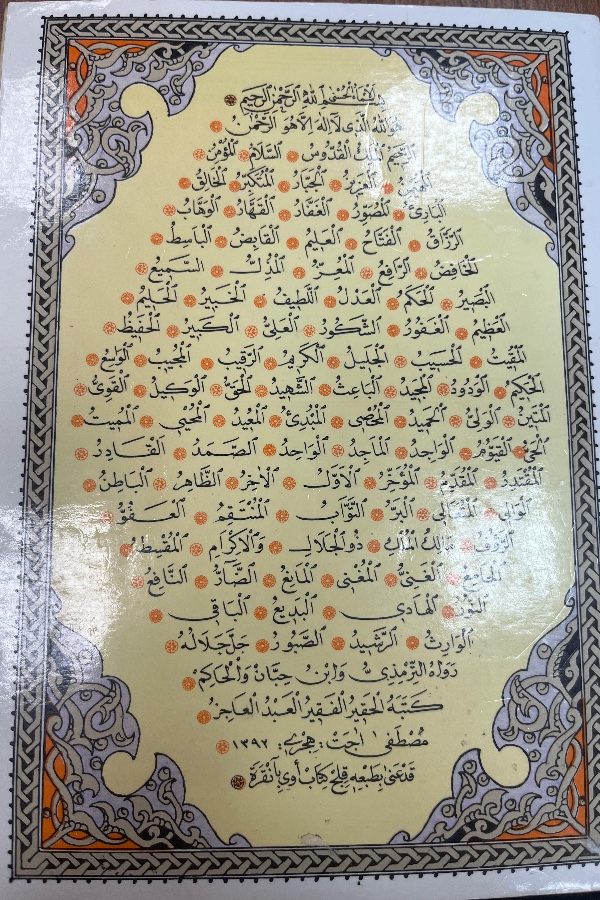 هذه الأسماء الحسنى بسم الله الرحمن الرحيم
هو الله الذي لا اله الا هو الرحمن
الرحيم الملك القدوس السلام المؤمن
المهيمن العزيز الجبار المتكبر الخالق
البارئ المصور الغفار القهار الوهاب
الرزاق الفتاح العليم القابض الباسط
الخافض الرافع المعز المذل السميع
البصير الحكم العدل اللطيف الخبير الحليم
العظيم الغفور الشكور العلي الكبير الحفيظ
المقيت الحسيب الجليل الكريم الرقيب المجيب الواسع
الحكيم الودود المجيد الباعث الشهيد الحق الوكيل القوي
المتين الولي الحميد المحصي المبدئ المعيد المحيي المميت
الحي القيوم الواجد الماجد الواحد الصمد القادر
المقتدر المقدم المؤخر الاول الاخر الظاهر الباطن
الوالي المتعالي البر التواب المنتقم العفو
الرؤف مالك الملك ذو الجلال والاكرام المقسط
الجامع الغني المغني المانع الضار النافع
النور الهادي البديع الباقي
الوارث الرشيد الصبور جل جلاله
رواه الترمذي وابن حبان والحاكم
كتبه الحقير الفقير العبد العاجز
مصطفى اجت: هجري: ١٣٩٢
قد عنى بطبعه قلج كتاب أوي بأنقرة